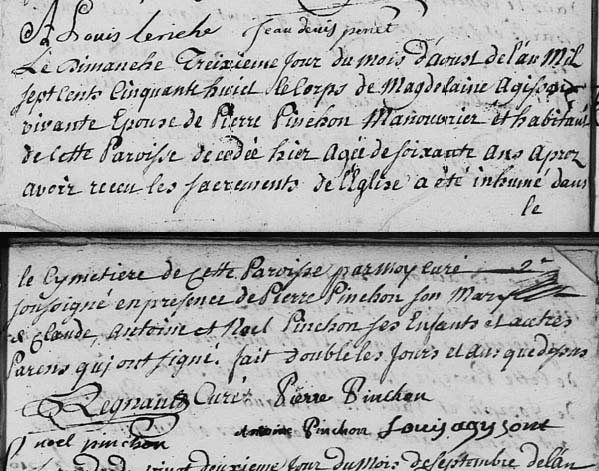 Louis leriche Jean denis perret
Le Dimanche Treizieme Jour du mois d'aoust de l'an Mil
sept cents Cinquante huict le Corps de Magdelaine Agisson
vivante Epouse de Pierre Pinchon Manouvrier et habitant
de Cette Paroisse decedée hier Agée de soixante Ans Aprez
avoir receu les sacrements de l'Eglise a été inhumé dans
le
le Cymetiere de Cette Paroisse par moy Curé
soussigné en presence de Pierre Pinchon son Mary
Claude, Antoine et Noel Pinchon ses Enfants et autres
Parens qui ont signé. fait double les Jours et Ans que dessus
Regnault Curé Pierre Pinchon
noel pinchon Antoine Pinchon Louis agysont
vingt deuxieme Jour du Mois de septembre de l'an